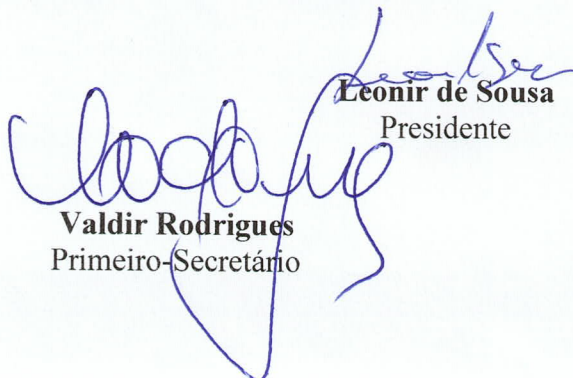 Leonir de Sousa
Presidente
Valdir Rodrigues
Primeiro-Secretário